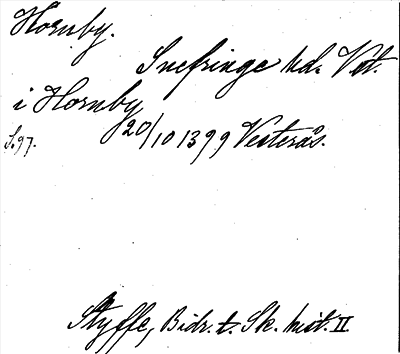 Hornby.
Snefringe hd. Vstl.
i Hornby
20/10 1399 Vesterås.
S.97.
Styffe, Bidr. t. Sk. hist. II